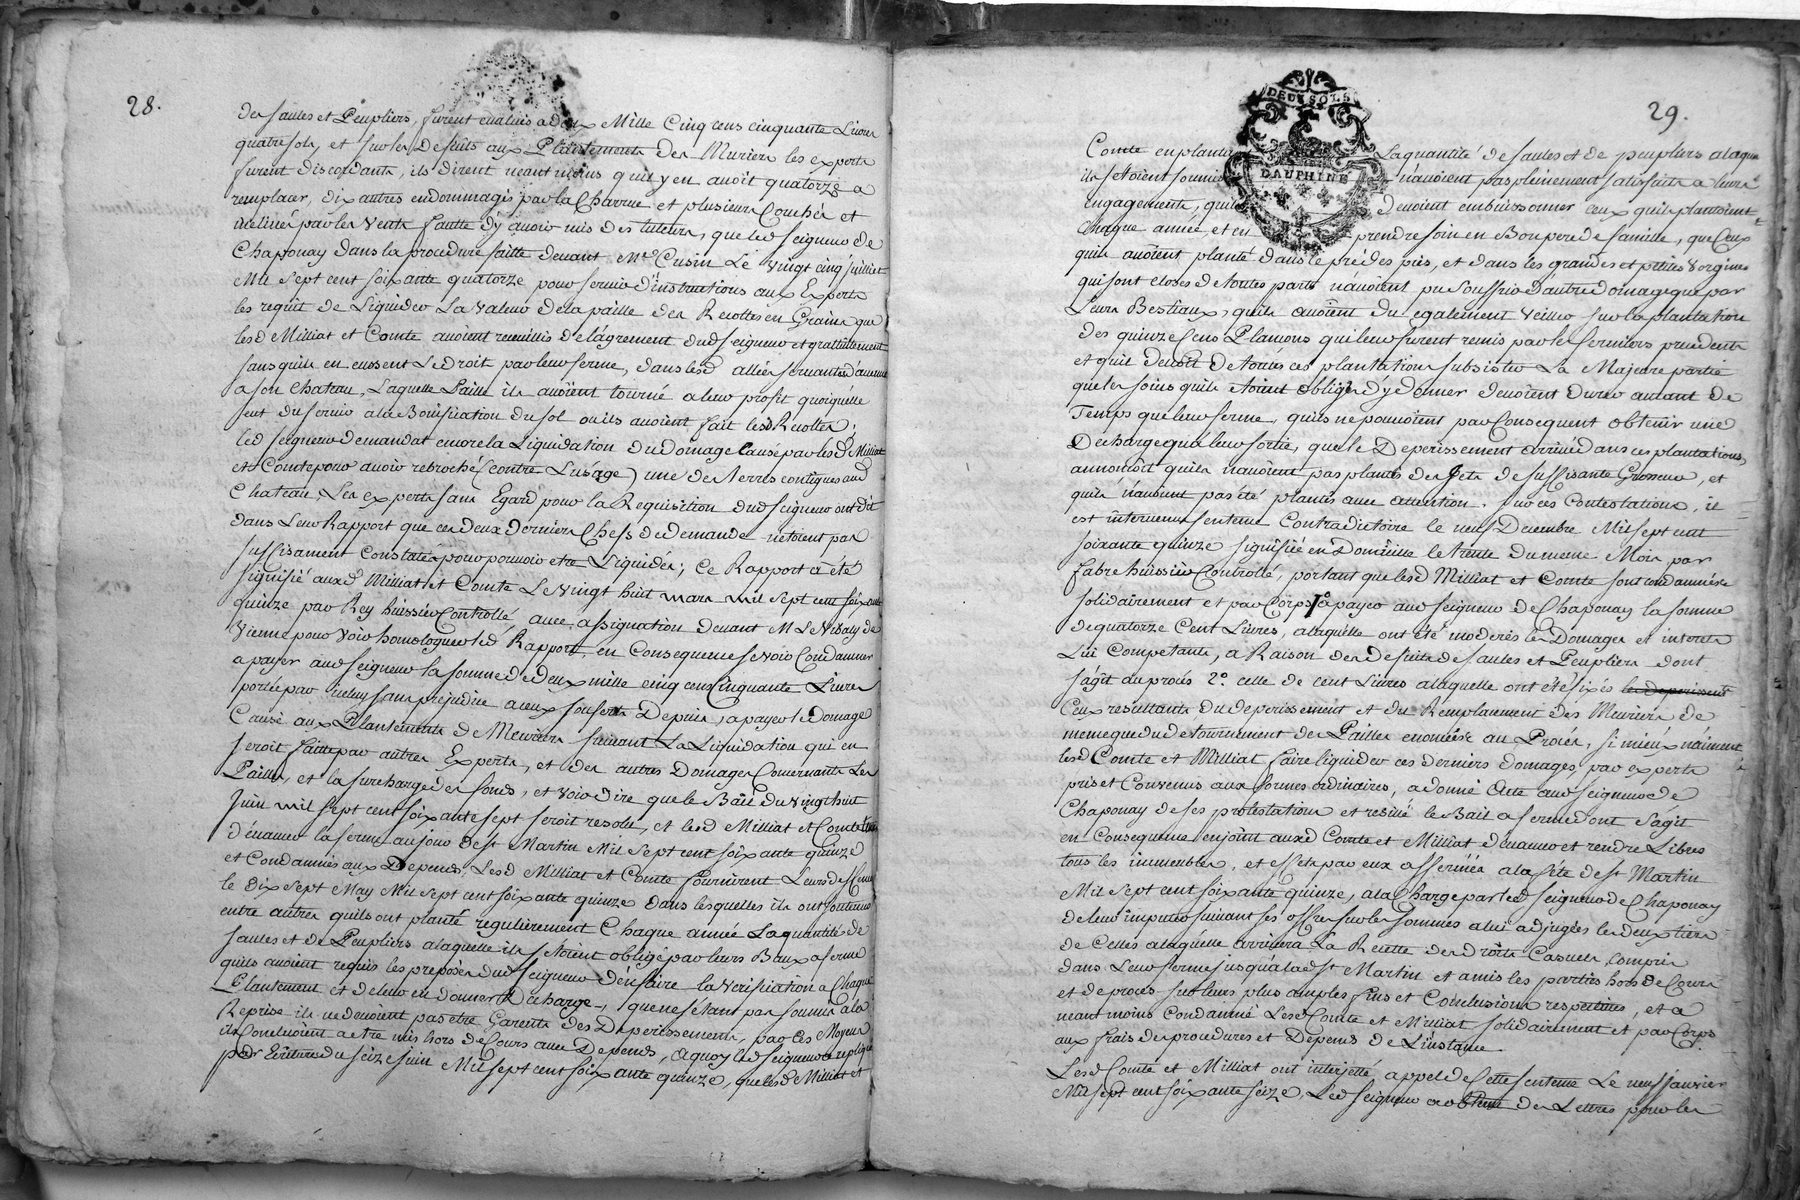 28.
des saules et Peupliers, furent evalués a deux Mille Cinq cens cinquante Livres
quatre sols, et sur les Deficits aux Plantements des Muriers les experts
furent discordants, ils dirent neant moins quil y en avoit quatorze a
remplacer, dix autres endommagés par la Charrue et plusieurs Couchés et
inclinés par les Vents faute d'y avoir mis des tuteurs, que led Seigneur de
Chaponay dans la procedure faitte devant Me Cusin Le vingt cinq juillet
Mil sept cent soixante quatorze pour servir d'instructions aux Experts
les requit de Liquider La valeur de la paille des Recoltes en Grains que
lesd Milliat et Comte avoient recueillis de l'agrement dud seigneur et gratuitement
sans quils en eussent Le droit par leur ferme, dans lesd allées servantes d'avenue
a son Chateau, Laquelle Paille ils avoient tourné a leur profit quoiqu'elle
eut du servir a la Bonification du sol ou ils avoient fait lesd Recoltes;
led seigneur demandat encore la Liquidation du domage Causé par lesd Milliat
et Comte pour avoir rebroché (contre L'usage) une des terres contigues aud
Chateau, Les experts sans Egard pour la Requisition dud seigneur ont dit
dans Leur Rapport que ces deux derniers Chefs de demande n'etoient pas
suffisament constatés pour pouvoir etre Liquidés; Ce Rapport a été
signifié auxd Milliat et Comte Le vingt huit mars mil sept cent soixante
quinze par Rey huissier Controllé avec assignation devant M Le Vibaly de
Vienne pour voir homologuer led Rapport, en Consequence se voir Condamner
a payer aud seigneur la somme de deux mille cinq cens cinquante Livres
portée par icelui sans prejudice a eux Depuis, a payer le domage
Causé aux Plantements de Meuriers suivant La Liquidation qui en
seroit faitte par autres Experts, et des autres Domages Concernants Les
Pailles, et la surcharge des fonds, et voir dire que le Bail du vingt huit
Juin mil sept cent soixante sept seroit resolu, et lesd Milliat et Comte
d'évacuer la ferme au jour de St Martin Mil sept cent soixante quinze
et Condamnés aux Depends, Lesd Milliat et Comte fournirent Leurs deffenses
le Dix sept May Mil sept cent soixante quinze dans lesquelles ils ont soutenu
entre autres quils ont planté regulierement Chaque année La quantité de
saules et de Peupliers a laquelle ils s'etoient obligé par leurs Baux a ferme
quils avoient requis les preposés dud Seigneur d'en faire la verification a Chaque
Plantement et de leur en donner Décharge, que ne s'etant pas soumis a la
Reprise ils ne devoient pas etre Garents des Deperissements, par ces Moyens
ils Concluoient a etre mis hors de Cours avec Depends, a quoy led seigneur a repliqué
par Ecritures du seize juin Mil sept cent soixante quinze, que lesd Milliat et
29.
DEUX SOLS
DAUPHINÉ
Comte en plantant La quantité de saules et de peupliers a laquelle
ils s'etoient soumis n'avoient pas pleinement satisfaits a leurs
engagements, quils devoient embuissonner ceux quils plantoient
Chaque année, et en prendre soin en Bon pere de famille, que Ceux
quils avoient planté dans le pré des piés, et dans les grandes et petites Vorgines
qui sont closes de toutes parts n'avoient pu souffrir d'autre domage que par
Leurs Bestiaux, quils avoient du egalement veiller sur la plantation
des quinze Cens Plançons qui leur furent remis par les fermiers precedents
et quil devoit de touts ces plantations subsister La Majeure partie
que les soins quils etoient obligés d'y donner devoient durer autant de
Temps que leur ferme, quils ne pouvoient par Consequent obtenir une
Décharge qu'a leur sortie, que le Deperissement arrivé dans ces plantations
annoncoit quils n'avoient pas plantés des Jets de suffisante Grosseur, et
quils n'avoient pas été plantés avec attention. sur ces Contestations, il
est intervenu sentence Contradictoire le neuf Décembre Mil sept cent
soixante quinze signifiée en Domicille le trente du meme Mois par
fabre huissier Controllé, portant que lesd Milliat et Comte sont condamnés
solidairement et par Corps 1° a payer aud seigneur de Chaponay la somme
de quatorze Cent Livres, a laquelle ont été moderés les Domages et interets
Lui Competants, a Raison des deficits de saules et Peupliers dont
s'agit au procès 2° celle de cent Livres a laquelle ont été fixés les deperissements
Ceux resultants du deperissement et du Remplacement des Meuriers de
meme que du detournement des Pailles enoncées au Procés, si mieux n'aiment
lesd Comte et Milliat faire liquider ces derniers domages, par experts
pris et Convenus aux formes ordinaires, a donné Acte aud seigneur de
Chaponay de ses protestations et resilié le Bail a ferme dont s'agit
en Consequence enjoint auxd Comte et Milliat d'évacuer et rendre Libres
tous les immeubles, et effets par eux affermés a la féte de St Martin
Mil sept cent soixante quinze, a la Charge par led seigneur de Chaponay
de leur imputer suivant ses offres sur les sommes a lui adjugées les deux tiers
de Celles a laquelle arrivera La Recette des droits Casuels compris
dans Leur ferme jusqu'a lad St Martin et a mis les parties hors de Cours
et de procés sur leurs plus amples fins et Conclusions respectives, et a
neant moins Condamné Lesd Comte et Milliat solidairement et par Corps
aux frais des procedures et Depends de L'instance
Lesd Comte et Milliat ont interjetté appel de Cette sentence Le neuf Janvier
Mil sept cent soixante seize, Led seigneur a obtenu des Lettres pour les